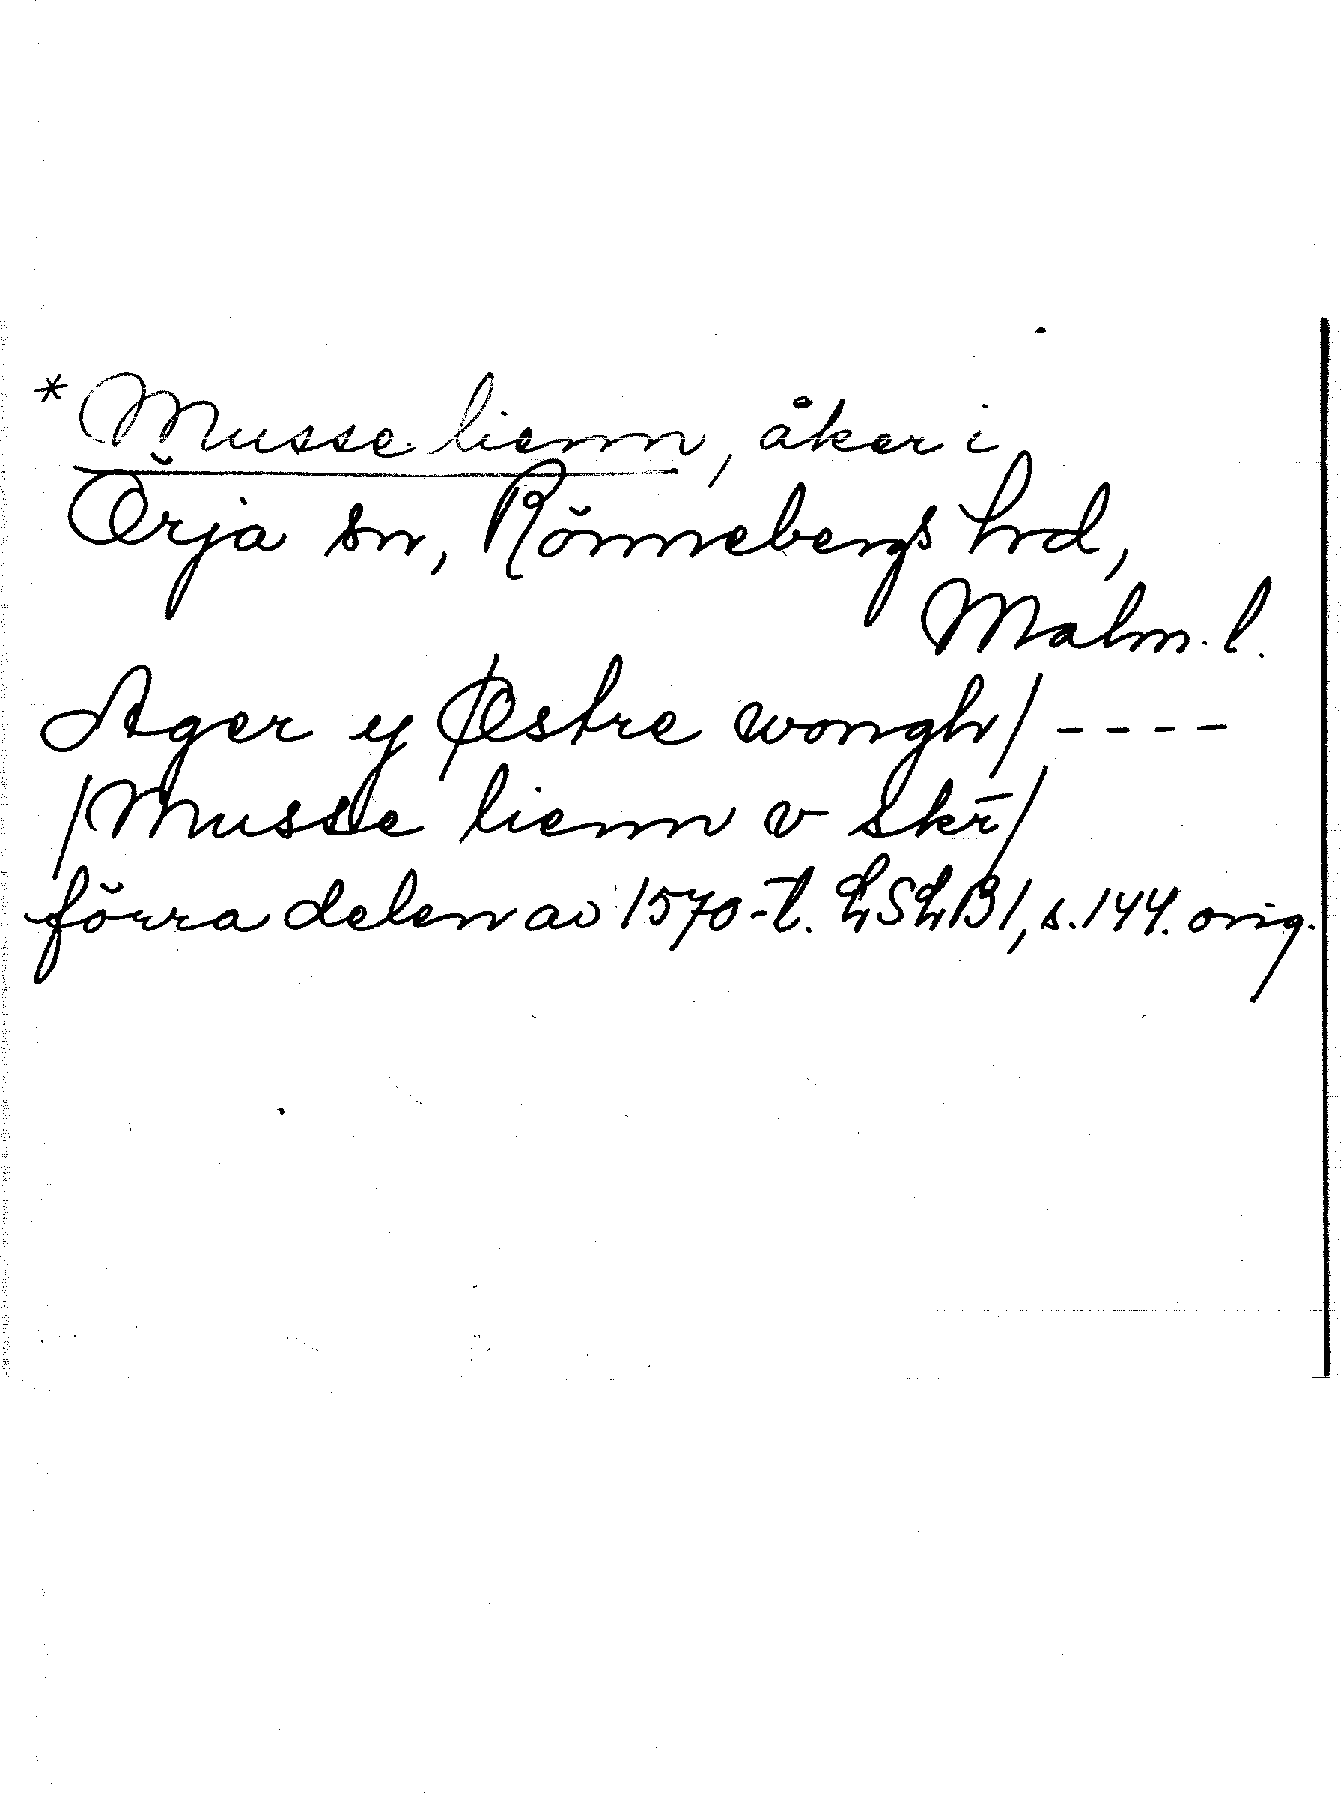 * Musse lienn, åker i
Örja sn, Rönnebergs hrd,
Malm. l.
Ager y Østre wongh/ ----
/Musse lienn v skr̄/
förra delen av 1570-t. LSLB 1, s. 144. orig.